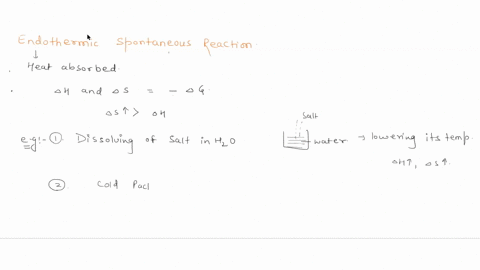 Endothermic Spontaneous Reaction.
↓
Heat absorbed.
ΔH and ΔS = - ΔG.
ΔS↑ > ΔH
e.g:- ① Dissolving of Salt in H2O
Salt
water → lowering its temp.
ΔH↑, ΔS↑.
② Cold Pacl